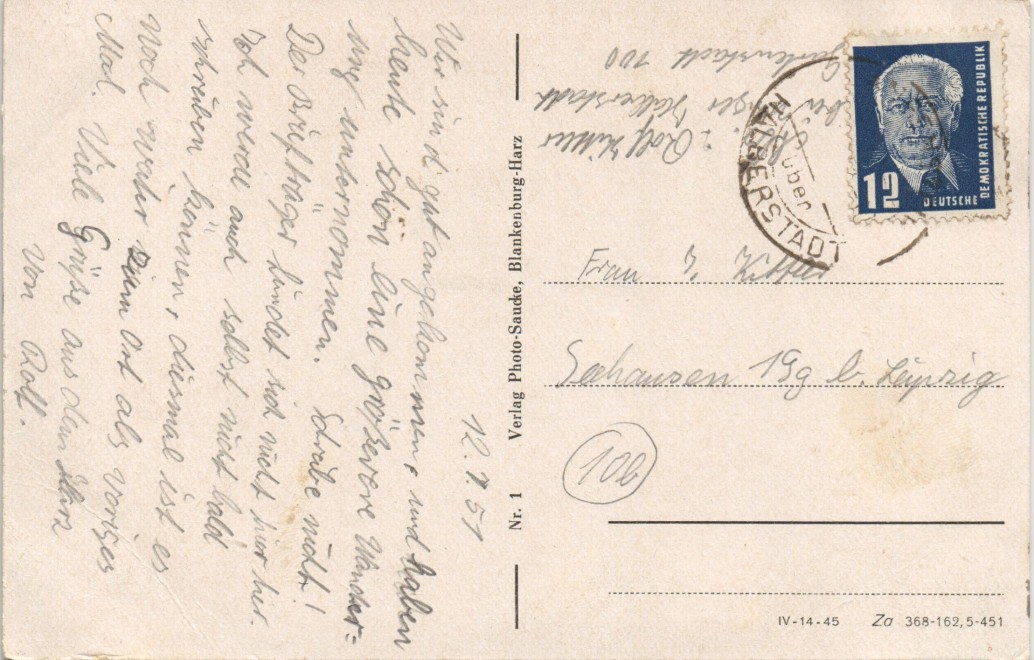 12.7.51
Wir sind gut angekommen, und haben
heute schon eine größere Wander=
ung unternommen. Schreibe nicht!
Der Briefträger findet sich nicht hier her.
ich werde auch selbst nicht bald
schreiben können, diesmal ist es
noch weiter zum Ort als voriges
Mal. Viele Grüße aus dem Harz
von Rolf.
Nr. 1 Verlag Photo-Saucke, Blankenburg-Harz
Rolf
über Halberstadt
100
über
HALBERSTADT
12
DEUTSCHE
DEMOKRATISCHE REPUBLIK
Frau
Seehausen 19g b. Leipzig
10b
IV-14-45 Za 368-162,5-451